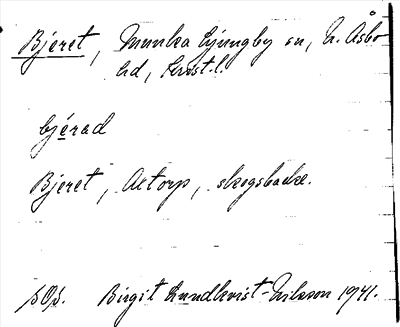 Bjeret, Munka Ljungby sn, N. Åsbo
hd, Krist. l.
bjérad
Bjeret, Aetorp, skogsbacke.
SOÞ. Birgit Lundkvist-Nilsson 1941.